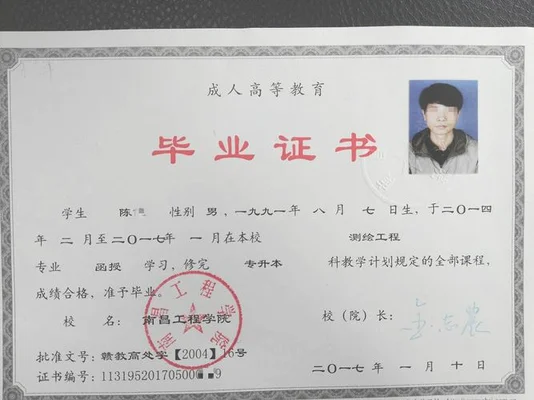 成人高等教育
毕业证书
学生 陈 性别 男，一九九一年 八 月 七 日生，于二〇一四
年 二 月至二〇一七年 一 月在本校 测绘工程
专业 函授 学习，修完 专升本 科教学计划规定的全部课程，
成绩合格，准予毕业。
校 名： 南昌工程学院 校（院）长：
批准文号：赣教高处字【2004】16号
证书编号：113195201705000 9 二〇一七年 一 月 十 日
南昌工程学院